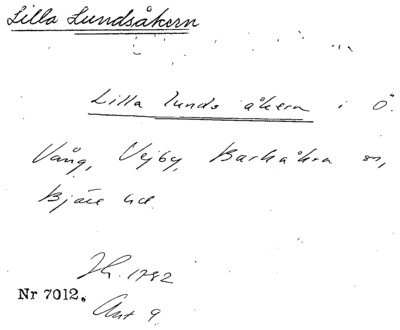 Lilla Lundsåkern
Lilla lunds åkern i Ö.
Vång, Vejby, Barkåkra sn,
Bjäre hd.
Jh. 1782
Nr 7012.
Akt 9.